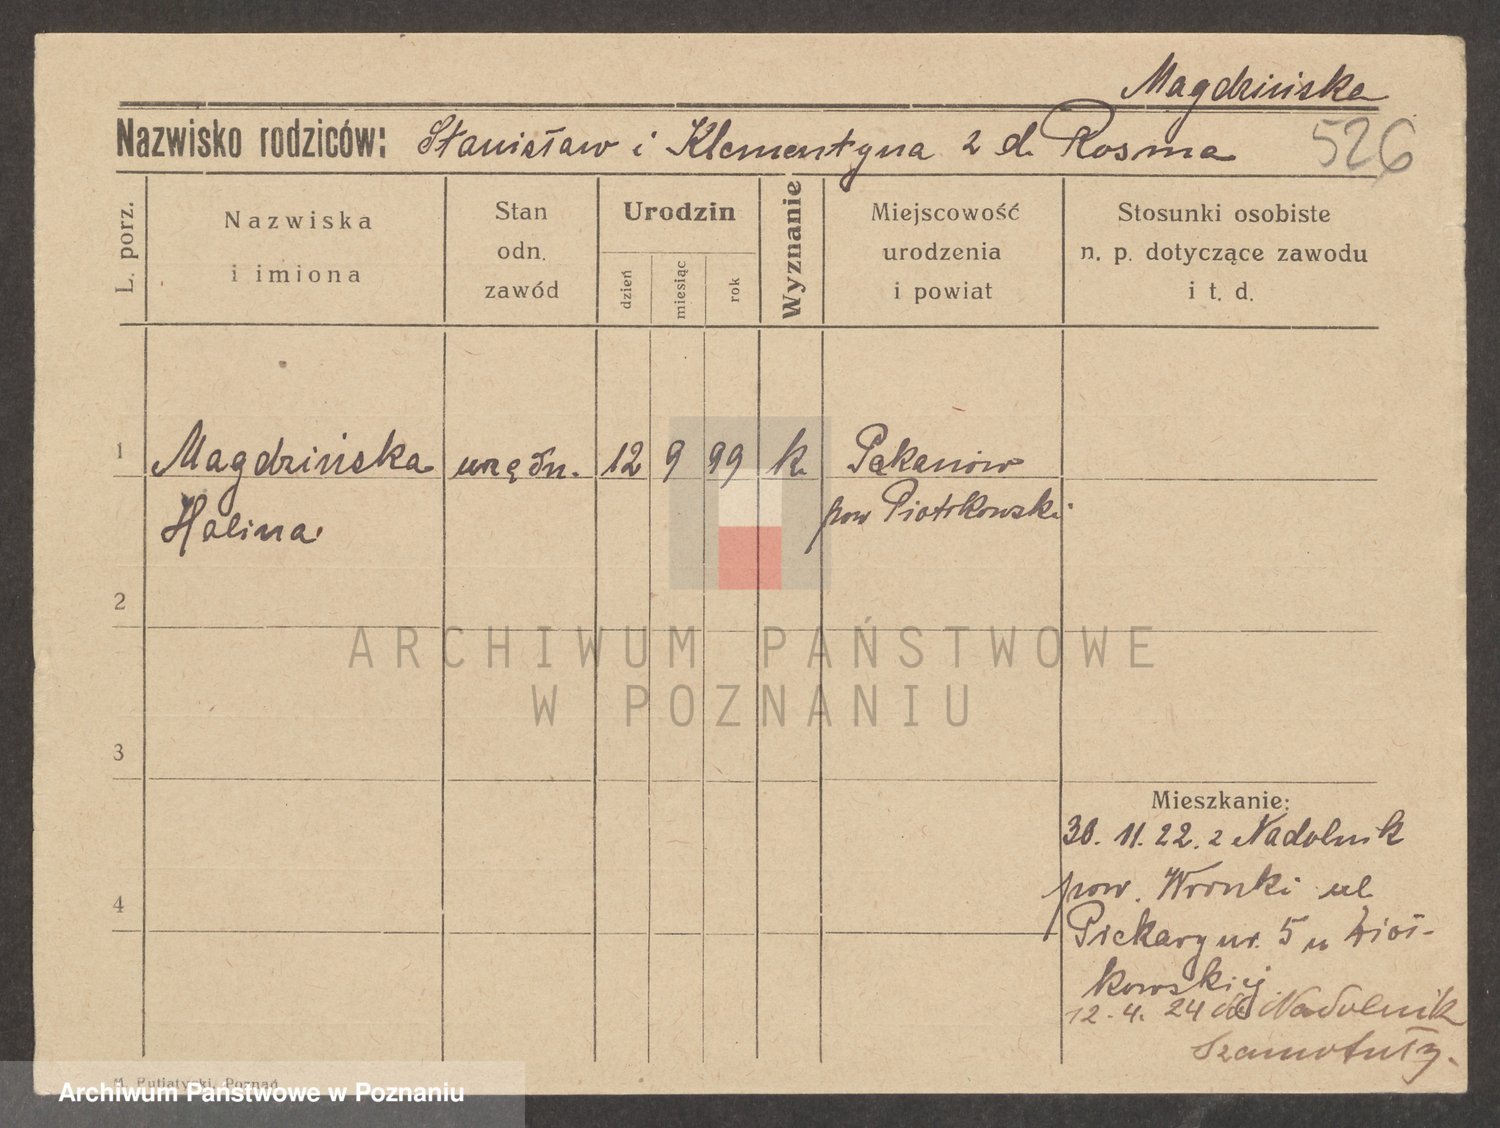 Magdzińska
Nazwisko rodziców: Stanisław i Klementyna z d. Rosma
526
L. porz.
Nazwiska
i imiona
Stan
odn.
zawód
Urodzin
dzień
miesiąc
rok
Wyznanie
Miejscowość
urodzenia
i powiat
Stosunki osobiste
n. p. dotyczące zawodu
i t. d.
1
Magdzińska urzędn. 12 9 99 k. Pękanów
Halina
pow Piotrkowski
2
ARCHIWUM PAŃSTWOWE
W POZNANIU
3
Mieszkanie:
30. 11. 22. z Nadolnik
pow. Wronki ul
4
Piekary nr. 5 u
kowskiej
12. 4. 24 do Nadolnik
Szamotuły.
M. Putiatycki, Poznań
Archiwum Państwowe w Poznaniu